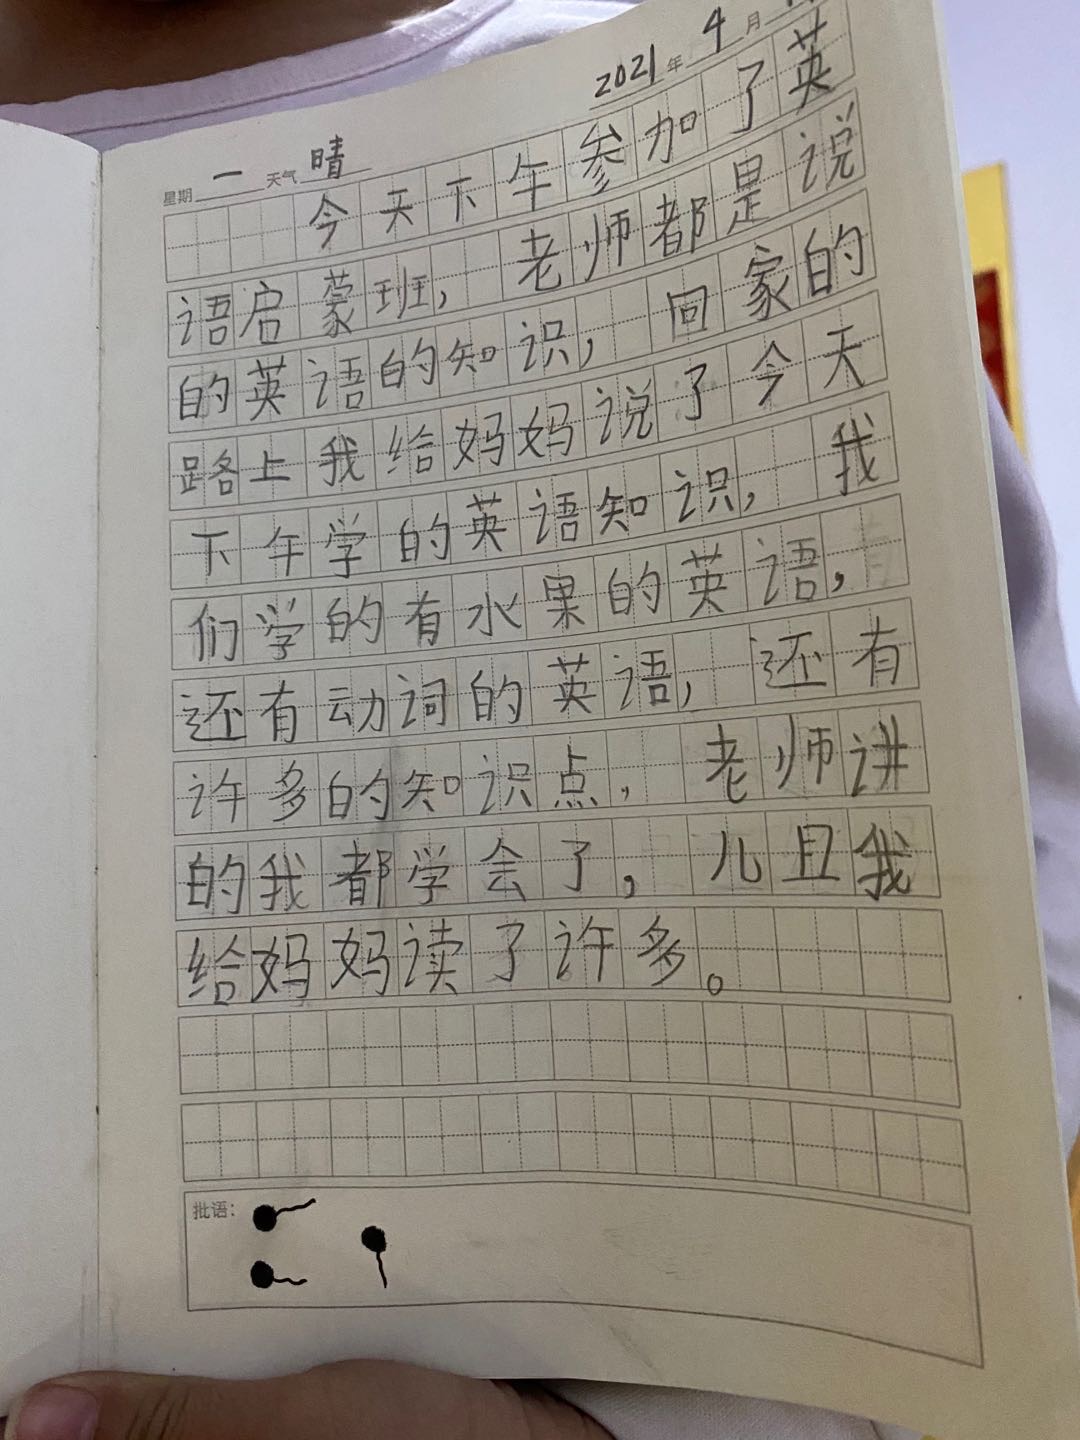 2021年 4月
星期 一 天气 晴
今天下午参加了英
语启蒙班，老师都是说
的英语的知识，回家的
路上我给妈妈说了今天
下午学的英语知识，我
们学的有水果的英语，
还有动词的英语，还有
许多的知识点，老师讲
的我都学会了，儿且我
给妈妈读了许多。
批语：